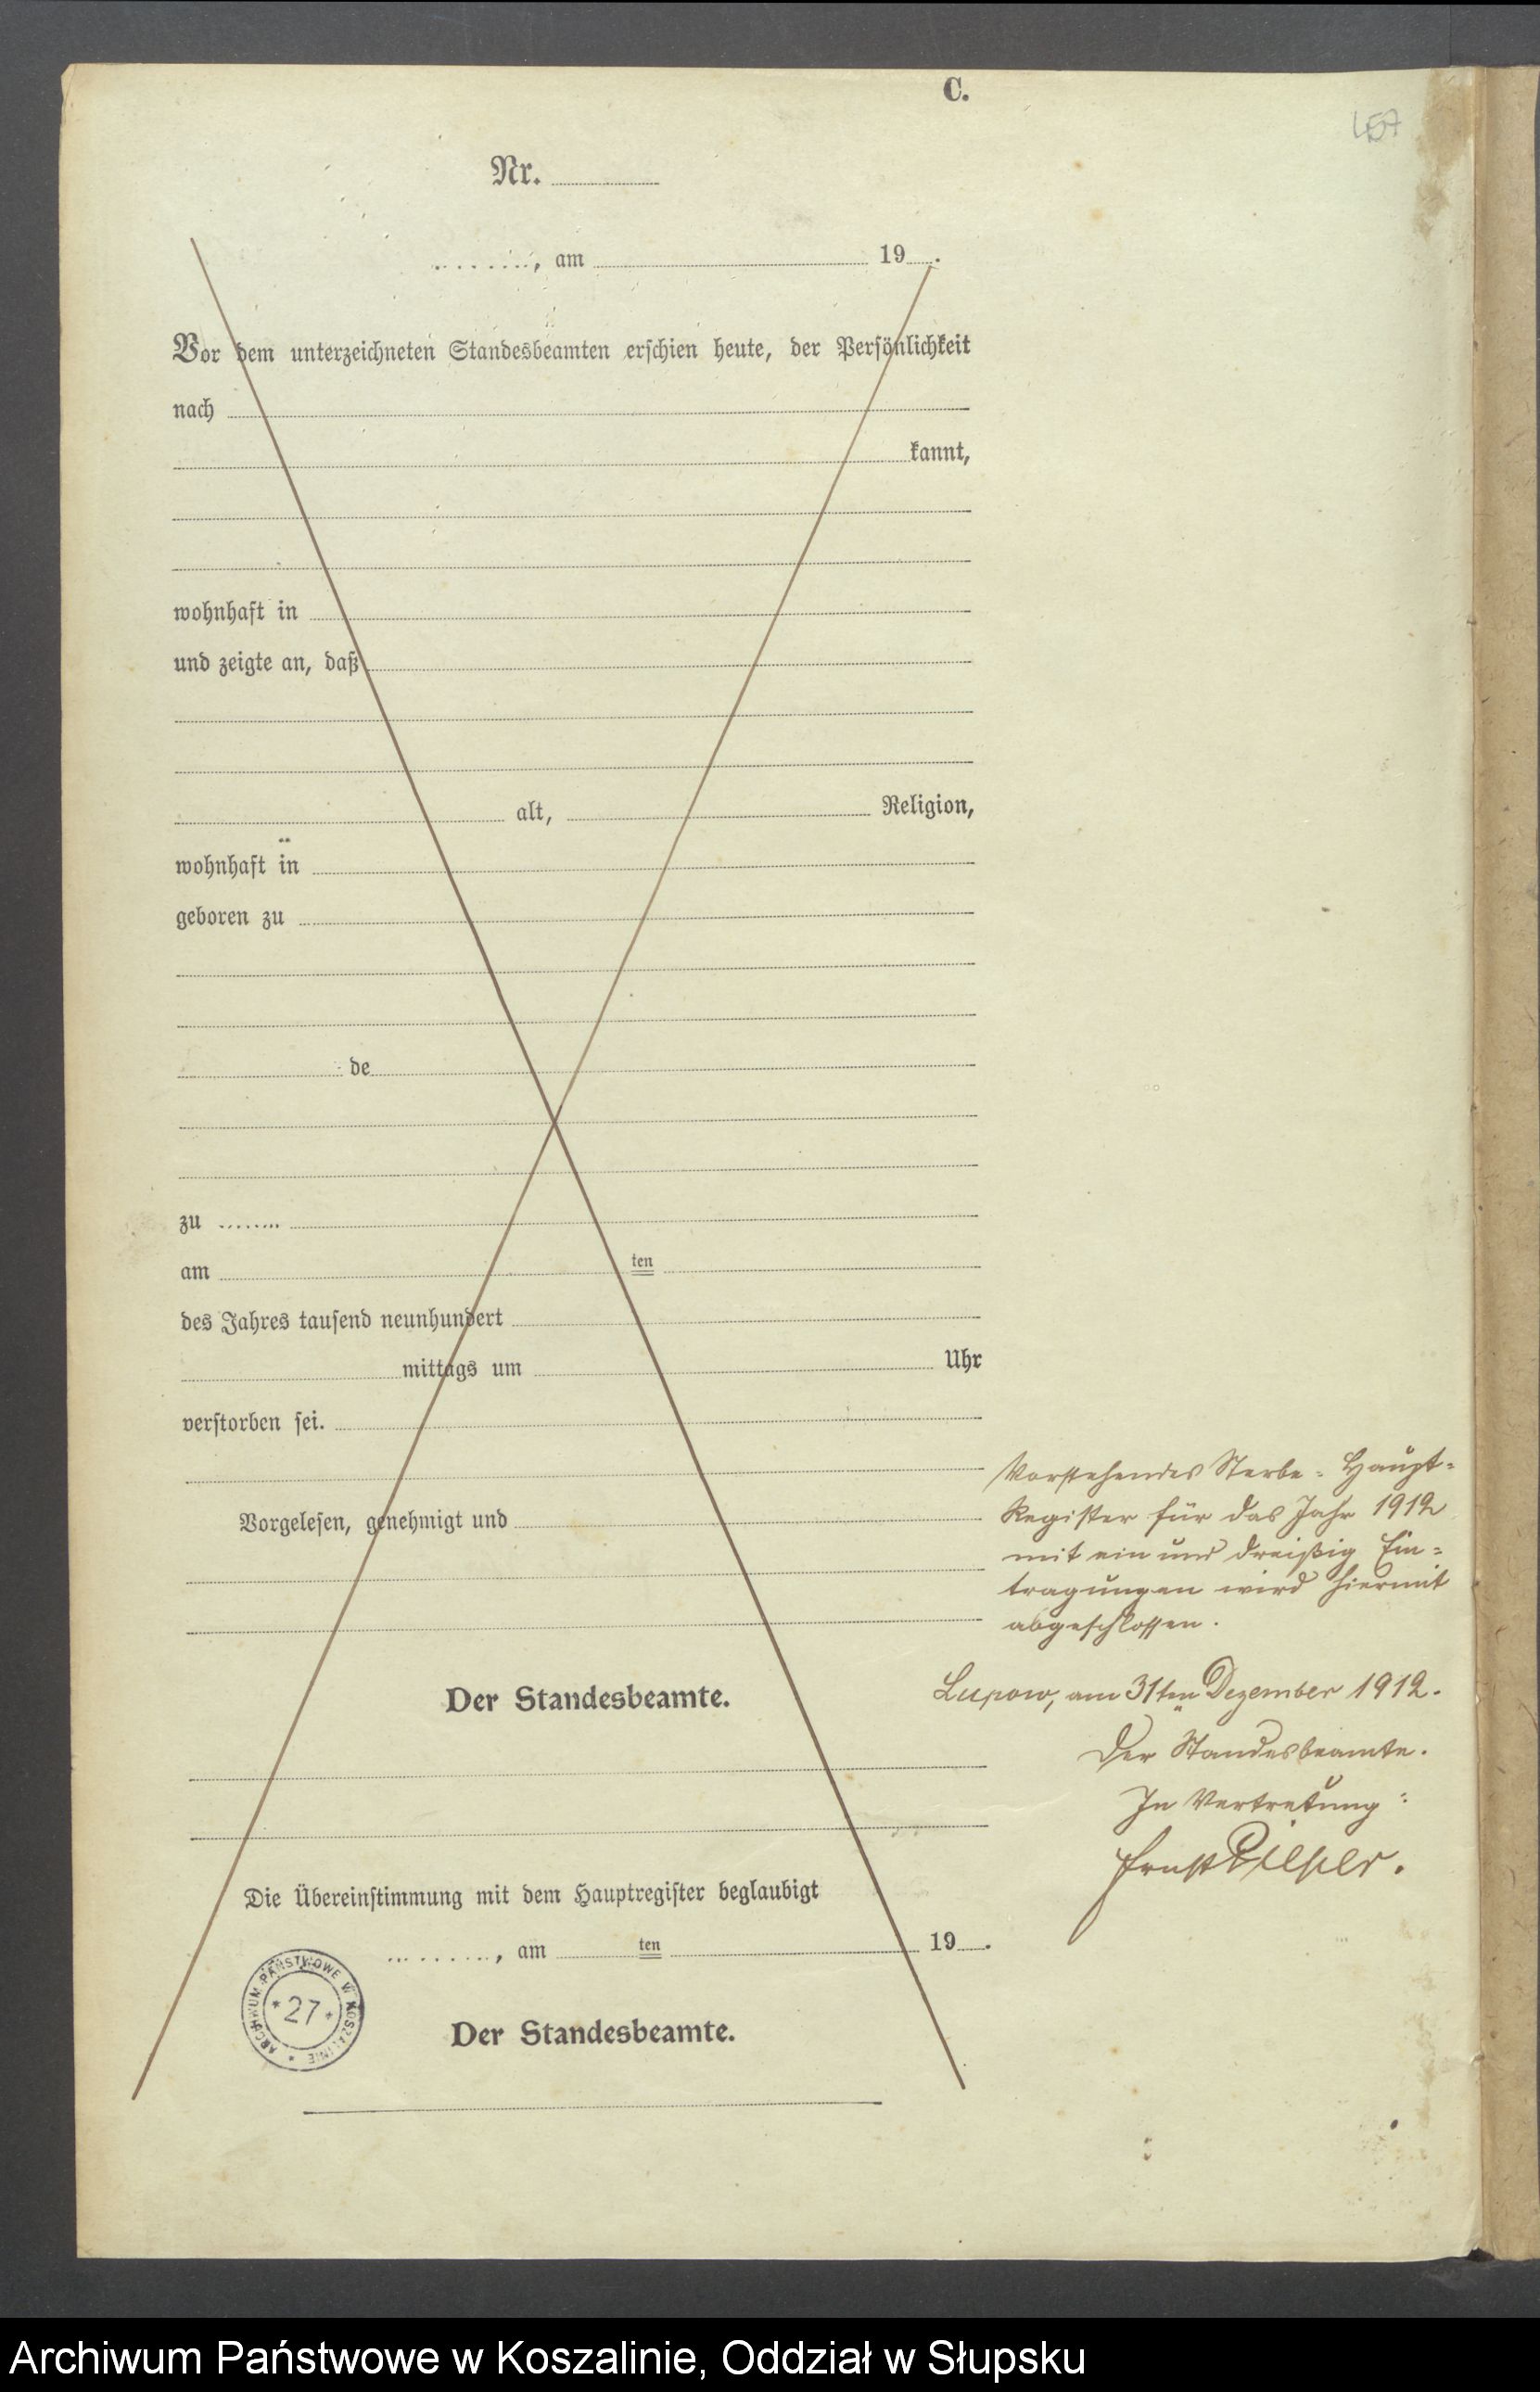 C.
Nr.
, am 19 .
Vor dem unterzeichneten Standesbeamten erschien heute, der Persönlichkeit
nach
kannt,
wohnhaft in
und zeigte an, daß
alt, Religion,
wohnhaft in
geboren zu
de
zu
am ten
des Jahres tausend neunhundert
mittags um Uhr
verstorben sei.
Vorgelesen, genehmigt und
Der Standesbeamte.
Die Übereinstimmung mit dem Hauptregister beglaubigt
, am ten 19 .
Der Standesbeamte.
Vorstehendes Sterbe-Haupt-
Register für das Jahr 1912
mit ein und dreißig Ein-
tragungen wird hiermit
abgeschlossen.
Lupow, am 31ten Dezember 1912.
Der Standesbeamte.
In Vertretung:
Ernst
ARCHIWUM PAŃSTWOWE W KOSZALINIE
* 27 *
Archiwum Państwowe w Koszalinie, Oddział w Słupsku